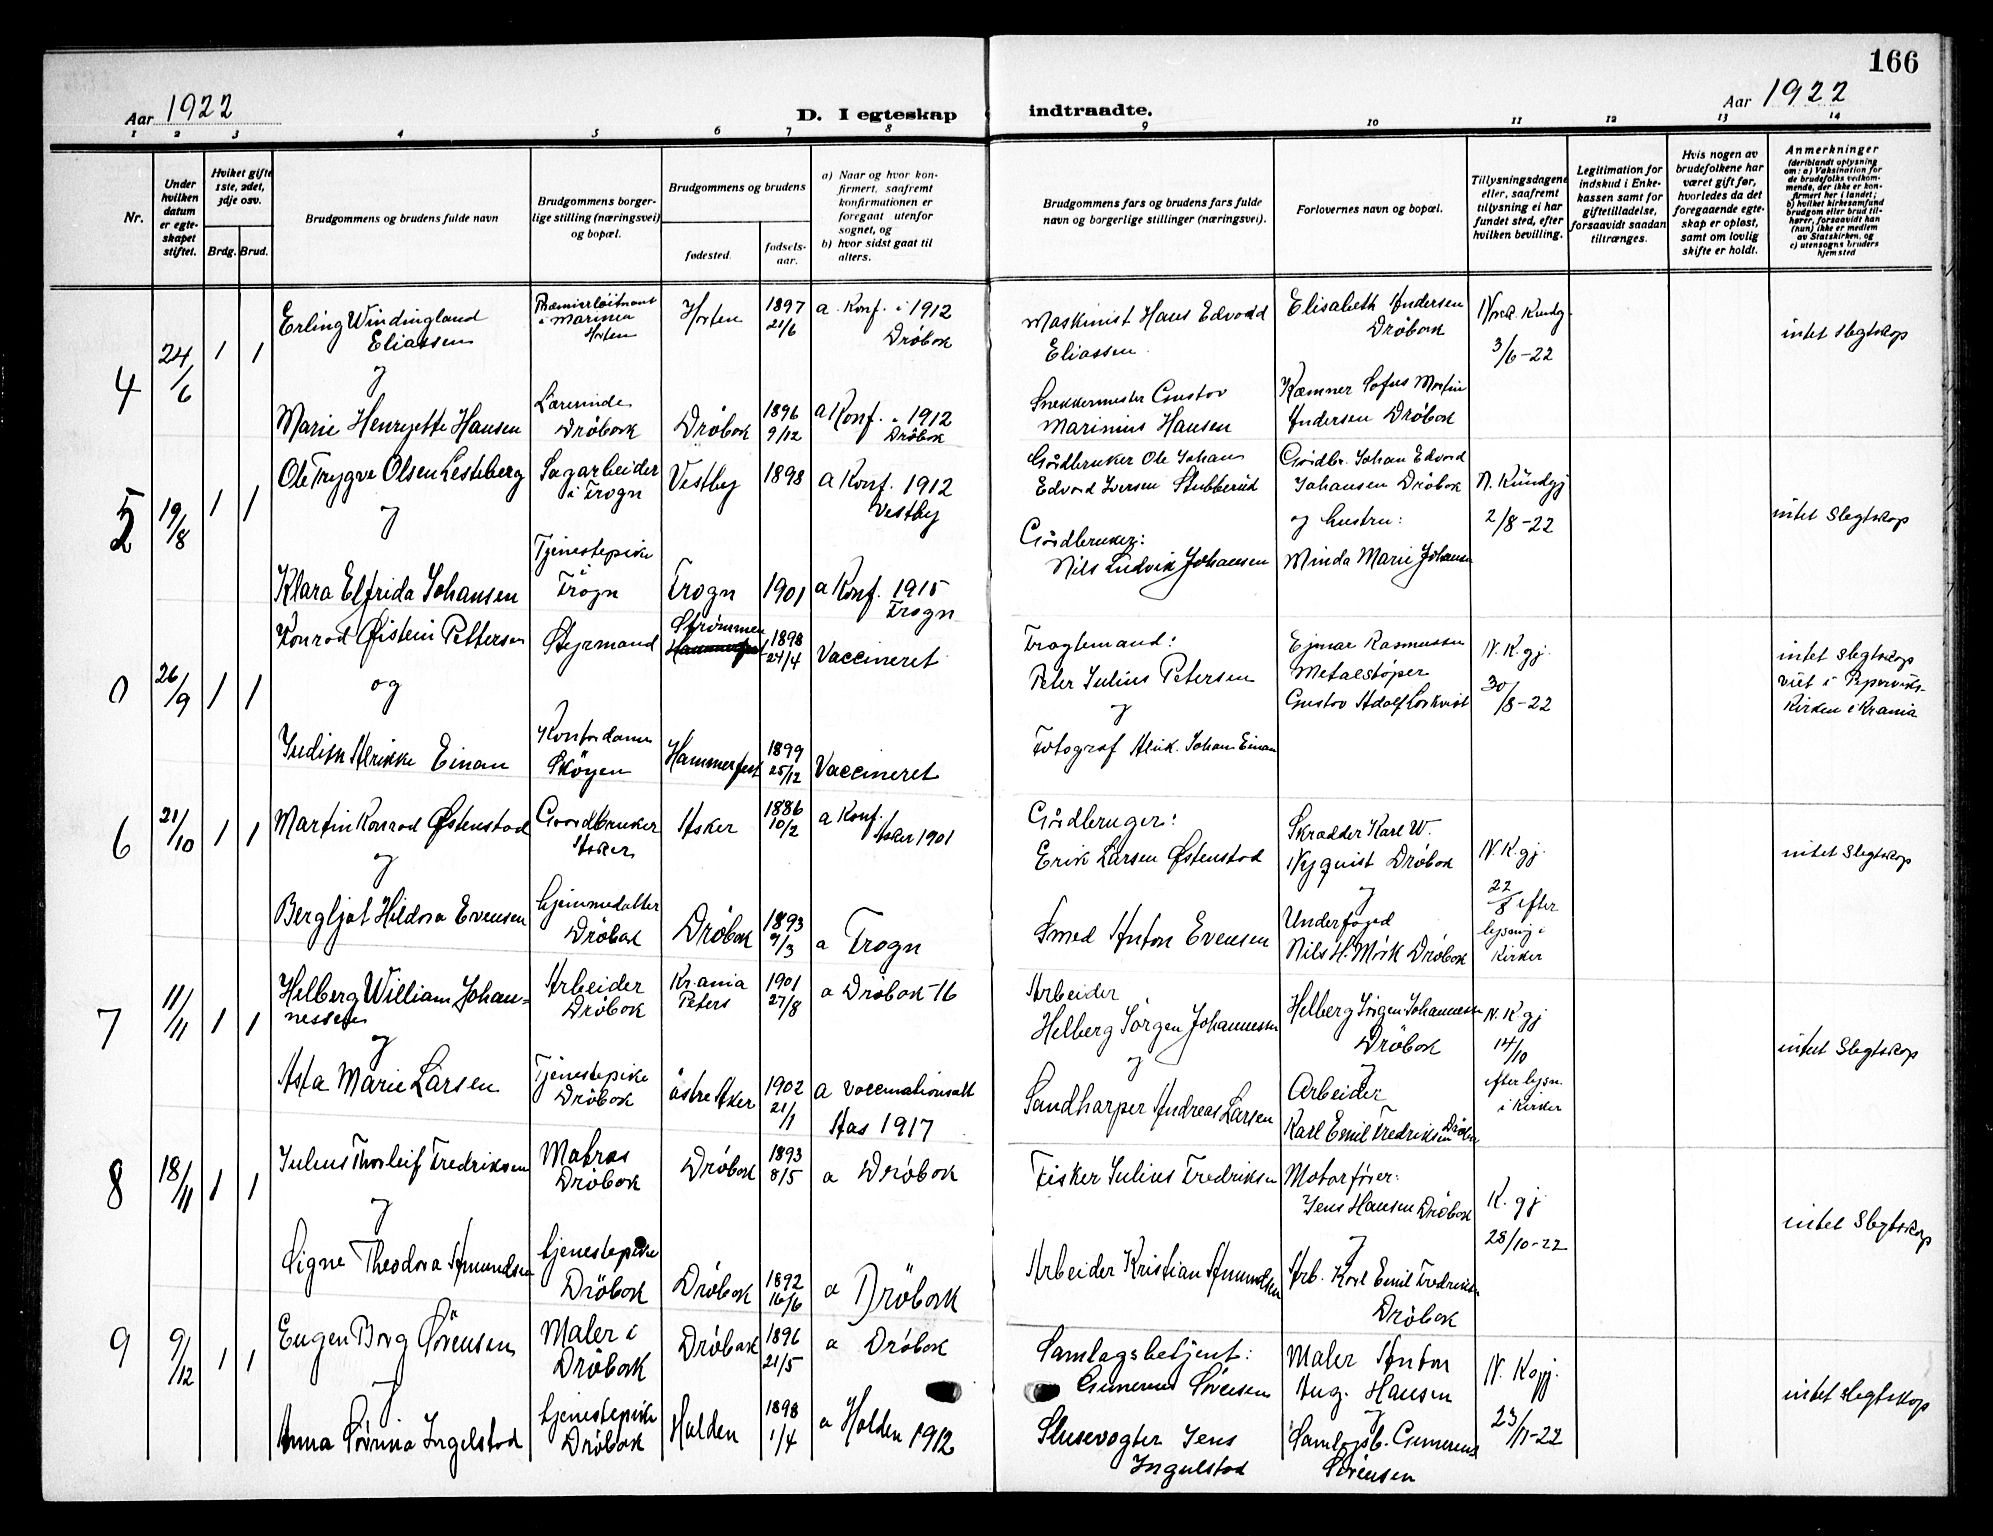 166
Aar 1922
D. I egteskap
indtraadte.
Aar 1922
1 2 3 4 5 6 7 8 9 10 11 12 13 14
Nr.
Under hvilken datum er egteskapet stiftet.
Hvilket gifte 1ste, 2det, 3dje osv.
Brdg. Brud.
Brudgommens og brudens fulde navn
Brudgommens borgerlige stilling (næringsvei) og bopæl.
Brudgommens og brudens
fødested.
fødselsaar.
a) Naar og hvor konfirmert, saafremt konfirmationen er foregaat utenfor sognet, og
b) hvor sidst gaat til alters.
Brudgommens fars og brudens fars fulde navn og borgerlige stillinger (næringsvei).
Forlovernes navn og bopæl.
Tillysningsdagene eller, saafremt tillysning ei har fundet sted, efter hvilken bevilling.
Legitimation for indskud i Enkekassen samt for giftetilladelse, forsaavidt saadan tiltrænges.
Hvis nogen av brudefolkene har været gift før, hvorledes da det foregaaende egteskap er opløst, samt om lovlig skifte er holdt.
Anmerkninger
(deriblandt oplysning om: a) Vaksination for de brudefolks vedkommende, der ikke er konfirmert her i landet; b) hvilket kirkesamfund brudgom eller brud tilhører, forsaavidt han (hun) ikke er medlem av Statskirken, og c) utensogns bruders hjemsted
4 24/6 1 1
Erling Windingland
Eliassen
og
Marie Henryette Hansen
Premierløitnant
i Marinen
Horten
Lærerinde
Drøbak
Horten 1897
21/6
Drøbak 1896
9/12
a. Konf. i 1912
Drøbak
a Konf. i 1912
Drøbak
Maskinist Hans Edvard
Eliassen
Snekkermester Gustav
Marinius Hansen
Elisabeth Andersen
Drøbak
Kæmner Sofus Martin
Andersen Drøbak
3/6-22
intet Slegtskap
5 19/8 1 1
Ole Trygve Olsen Lesteberg
og
Klara Elfrida Johansen
Sagarbeider
i Frogn
Tjenestepike
i
Frogn
Vestby 1898
Frogn 1901
a Konf. 1912
Vestby
a Konf. 1915
Frogn
Gårdbruker Ole Johans
Edvard Iversen Stubberud
Gårdbruker:
Nils Ludvik Johansen
Gårdbr. Johan Edvard
Johansen Drøbak
og hustru:
Minda Marie Johansen
N. Kundgj
2/8-22
intet Slegtskap
0 26/9 1 1
Konrad Øistein Pettersen
og
Alrikke Einan
Styrmand
Kontordame
Skøyen
Strømmen
Hammerfest
1898
24/4
Hammerfest 1899
25/12
Vaccineret
Vaccineret
Fragtemand:
Peter Julius Petersen
og
Fotograf Alrik. Johan Einan
Ejmar Rasmussen
Metalstøper
Gustav Adolf
N. K. gj.
30/8-22
intet Slegtskap
viet i Pipervikskirken i Krania
6 21/10 1 1
Martin Konrad Østenstad
og
Bergljot Hildora Evensen
Gaardbruker
Asker
hjemmedatter
Drøbak
Asker 1886
10/2
Drøbak 1893
9/3
a Konf.
Asker 1901
a Frogn
Gårdbruger:
Erik Larsen Østenstad
Smed Anton Evensen
Skradder Karl W.
Nyquist Drøbak
og
Underfoged
Nils H. Mørk Drøbak
N. K. gj.
22/8 efter
lysning i
kirken
intet Slegtskap
7 11/11 1 1
Helberg William Johannessen
og
Asta Marie Larsen
Arbeider
Drøbak
Tjenestepike
Drøbak
Kr.ania
Peters
1901
27/8
østre Aker 1902
21/1
a Drøbak 16
a vaccinationsatt
Aas 1917
Arbeider
Helberg Jørgen Johannessen
og
Sandharper Andreas Larsen
Helberg Jørgen Johannessen
Drøbak
og
Arbeider
Karl Emil Fredriksen Drøbak
N. K gj
14/10
efter lysn.
i kirken
intet Slegtskap
8 18/11 1 1
Julius Thorleif Fredriksen
og
Signe Theodora Amundsen
Matros
Drøbak
tjenestepike
Drøbak
Drøbak 1893
8/5
Drøbak 1892
16/6
a Drøbak
a Drøbak
Fisker Julius Fredriksen
Arbeider Kristian Amundsen
Motorfører:
Jens Hansen Drøbak
og
Arb. Karl Emil Fredriksen
Drøbak
K. gj
28/10-22
intet Slegtskap
9 9/12 1 1
Eugen Borg Sørensen
og
Anna Sørina Ingelstad
Maler i
Drøbak
tjenestepike
Drøbak
Drøbak 1896
21/5
Halden 1898
1/4
a Drøbak
a Halden 1912
Samlagsbetjent:
Gunerius Sørensen
Slusevogter Jens
Ingelstad
Maler Anton
Aug. Hansen
og
Samlagsb. Gunerius
Sørensen
N. Kgj.
23/11-22
intet Slegtskap